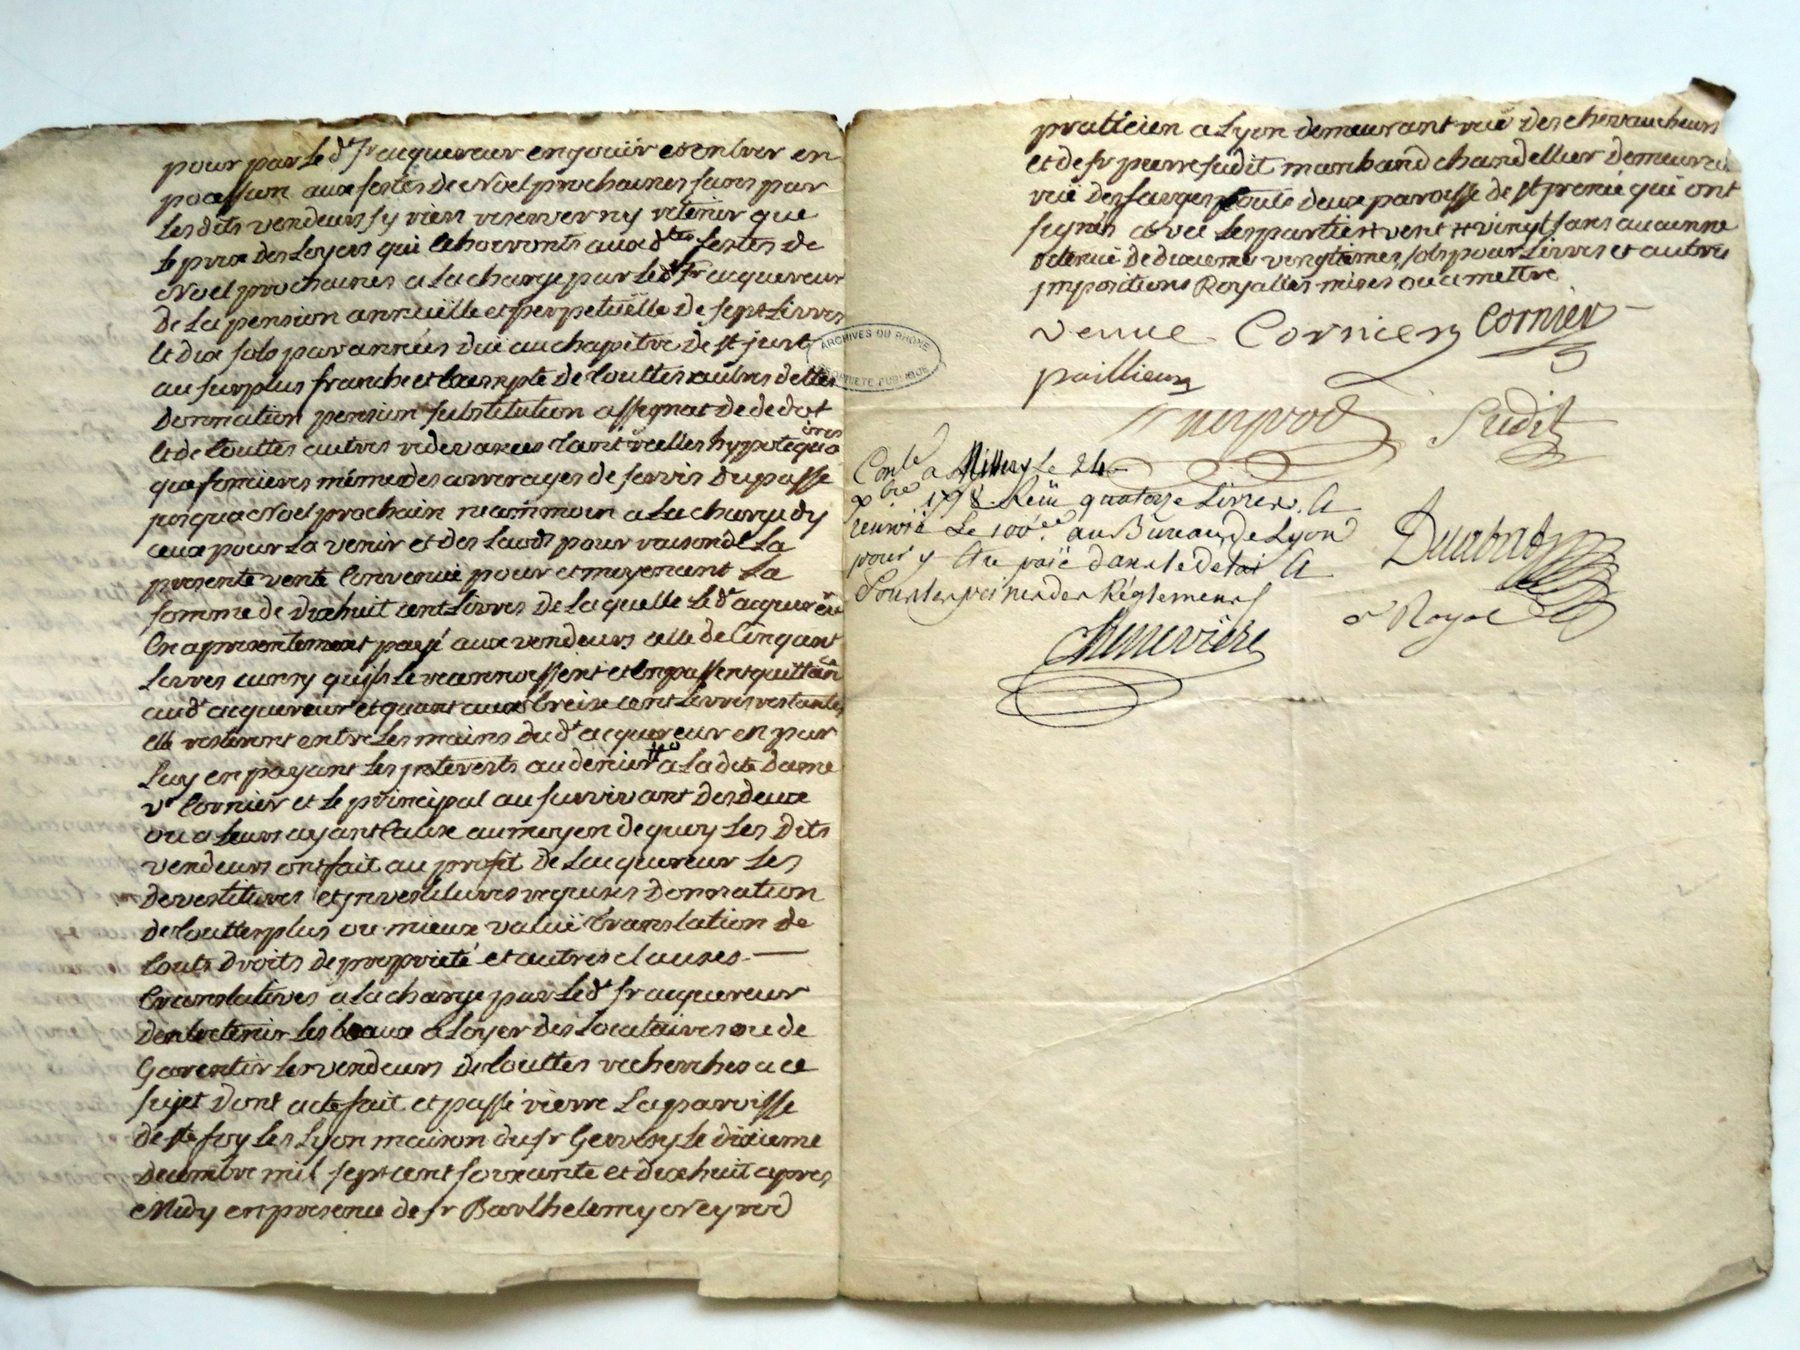 pour par le dt sr acquereur en jouir et entrer en
pocession aux festes de Noel prochaines sans par
les dits vendeurs sy rien reserver ny retenir que
le prix des Loyers qui echoeronts aux dtes festes de
Noel prochaines a la charge par le dt sr acquereur
de la pension annuëlle et perpetuëlle de sept Livres
et dix sols par années duë au chapitre de st just
au surplus franche et exempte de touttes autres dettes
donnation pension substitution assignat de dot
et de touttes autres redevances tant reelles hypotequaires
que foncieres mêmes des arrerages de servis du passé
jusqua Noel prochain neanmoin a la charge dy
ceux pour La venir et des Laods pour raison de La
presente vente Convenuë pour et moyenent La
somme de dixhuit cent Livres de laquelle le dt acquereur
En a presentement payé aux vendeurs celle de Cinq cent
Livres ainsy quils le reconnoissent et en passent quittance
au dt acquereur et quant aux treize cent Livres restantes
elle resteront entre les mains du dt acquereur en par
luy en payant les jnterets au denier a la dite dame
ve Cornier et le principal au survivant des deux
ou a leurs ayant Cause au moyen de quoy Les dits
vendeurs ont fait au profit de Lacquereur Les
devestitures et jnvestitures requises donnation
de touttes plus ou mieux valuë translation de
touts droits de proprieté et autres clauses
translatives a la charge par le dt sr acquereur
dentretenir les beaux a Loyer des Locataires ou de
Garentir les vendeurs de touttes recherches a ce
sujet dont acte fait et passé rierre La paroisse
de ste foy Les Lyon maison du sr Gervesy le dixieme
decembre mil sept cent soixante et dixhuit apres
Midy en presence de sr Barthelemy Neyrod
pratticien a Lyon demeurant ruë des chevaucheurs
et de sr pierre sudit marchand chandellier demeurant
ruë des farges touts deux paroisse de st jrenée qui ont
signés avec les parties sans aucunne
retenuë de dixieme vingtiemes, sols pour Livres et autres
jmpositions Royalles mises ou a mettre
veuve Cornier Cornier
paillieux
Neyrod Sudit
ARCHIVES DU RHONE
PROPRIETE PUBLIQUE
Conlé a Millery Le 24
xbre 1778 Reçu quatorze Livres. Et
renvoié Le 100e. au Bureau de Lyon
pour y être païé dans le delai Et
Sous les peines des Réglemens
Chenevière
Nre Royal